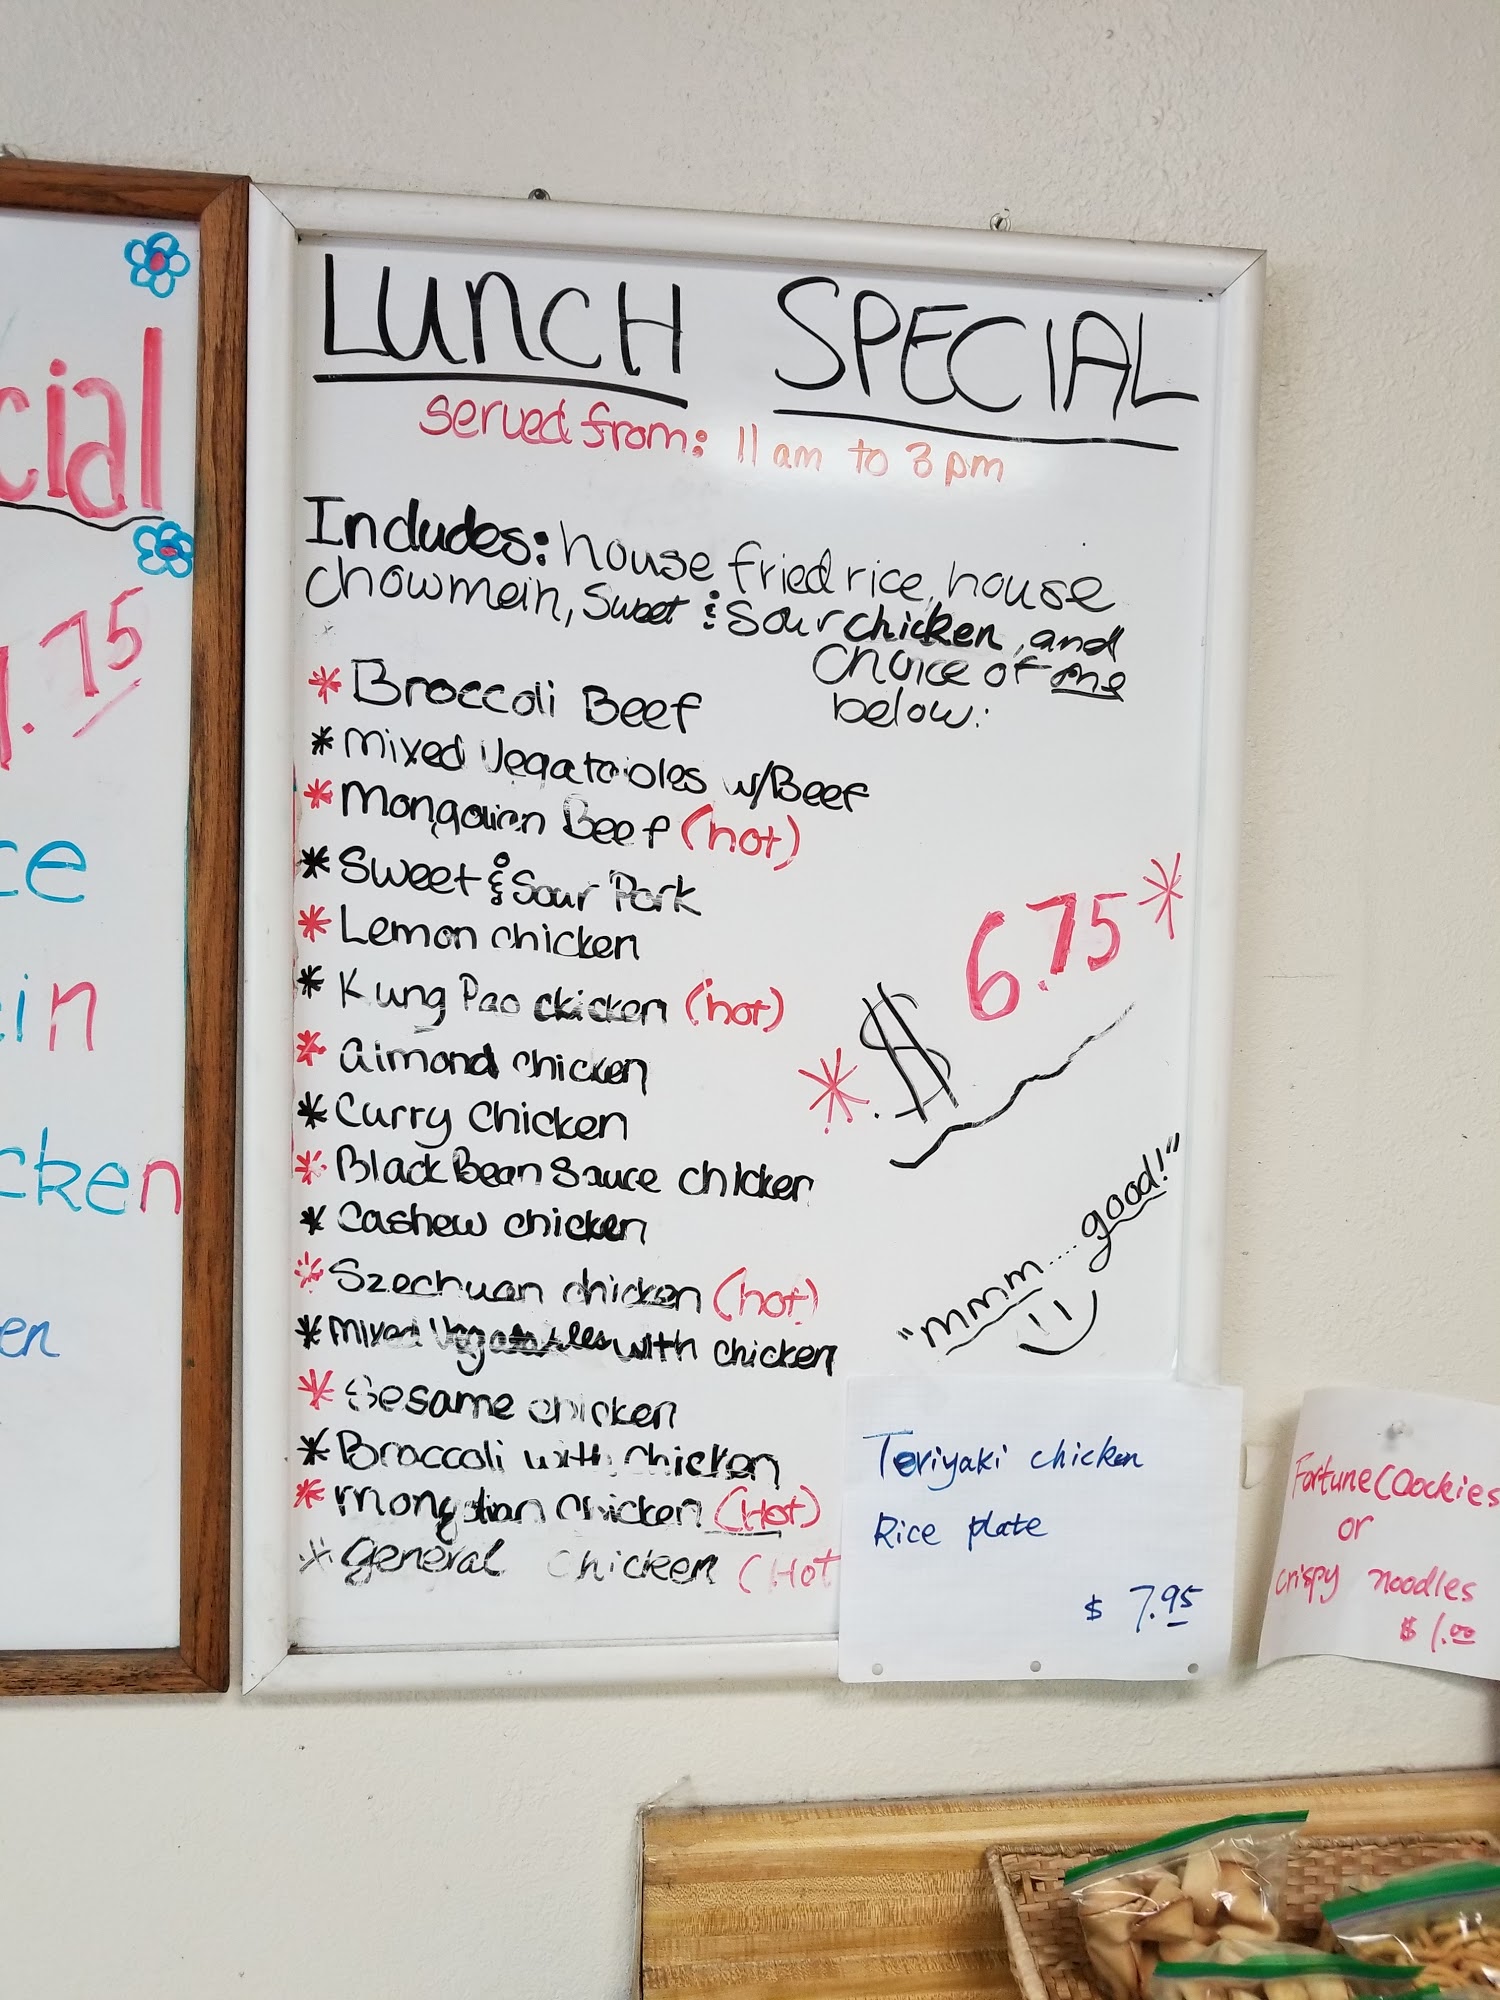 cial
.75
ce
ein
cken
en
LUNCH SPECIAL
served from: 11am to 3pm
Includes: house fried rice, house
chowmein, Sweet & Sour chicken, and
choice of one
below:
* Broccoli Beef
* Mixed Vegatables w/Beef
* Mongolian Beef (hot)
* Sweet & Sour Pork
* Lemon chicken
* Kung Pao chicken (hot)
* Almond chicken
* Curry Chicken
* Black Bean Sauce chicken
* Cashew chicken
* Szechuan chicken (hot)
* Mixed Vegatables with chicken
* Sesame chicken
* Broccoli with chicken
* Mongolian Chicken (Hot)
* General Chicken (Hot
* $ 6.75 *
"mmm....good!"
Teriyaki chicken
Rice plate
$ 7.95
Fortune Coockies
or
crispy noodles
$ 1.00